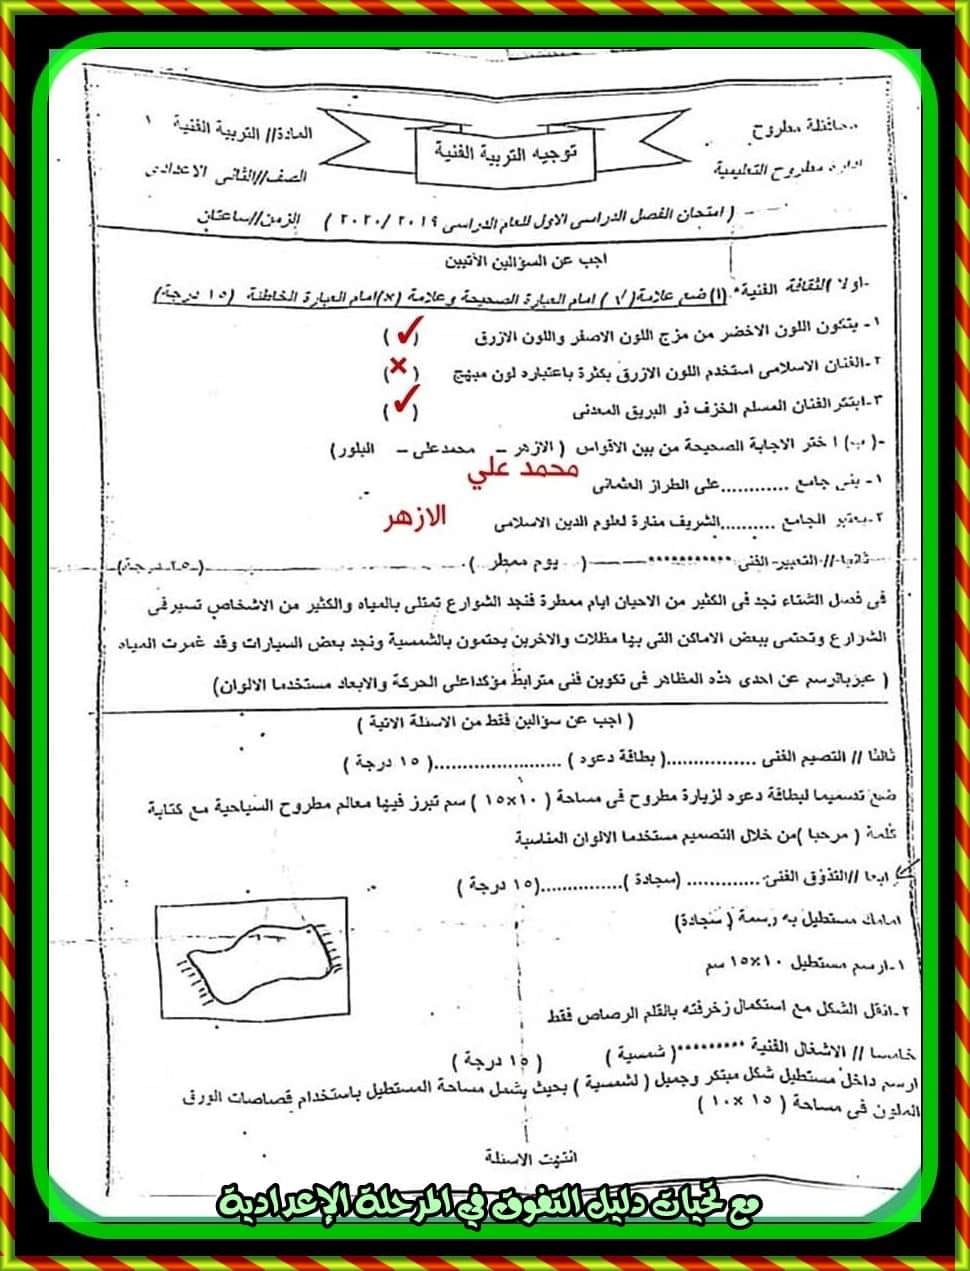 محافظة مطروح
ادارة مطروح التعليمية
توجيه التربية الفنية
المادة// التربية الفنية ١
الصف//الثانى الاعدادى
( امتحان الفصل الدراسى الاول للعام الدراسى ٢٠١٩ /٢٠٢٠ ) الزمن//ساعتان
اجب عن السؤالين الأتيين
-اولا //الثقافة الفنية* (ا) ضع علامة( √ ) امام العبارة الصحيحة وعلامة (×)امام العبارة الخاطئة (١٥ درجة)
١- يتكون اللون الاخضر من مزج اللون الاصفر واللون الازرق (✓)
٢-الفنان الاسلامى استخدم اللون الازرق بكثرة باعتباره لون مبهج (×)
٣-ابتكر الفنان المسلم الخزف ذو البريق المعدنى (✓)
-(ب) ا ختر الاجابة الصحيحة من بين الاقواس ( الازهر – محمدعلى – البلور)
محمد علي
١- بنى جامع ............على الطراز العثمانى
٢-يعتبر الجامع ..........الشريف منارة لعلوم الدين الاسلامى الازهر
ثانيا //التعبير الفنى *********** ( يوم ممطر ) (٢٥ درجة)
فى فصل الشتاء نجد فى الكثير من الاحيان ايام ممطرة فنجد الشوارع تمتلى بالمياه والكثير من الاشخاص تسير فى
الشوارع وتحتمى ببعض الاماكن التى بها مظلات والاخرين يحتمون بالشمسية ونجد بعض السيارات وقد غمرت المياه
( عبربالرسم عن احدى هذه المظاهر فى تكوين فنى مترابط مؤكداعلى الحركة والابعاد مستخدما الالوان)
( اجب عن سؤالين فقط من الاسئلة الاتية )
ثالثا // التصيم الفنى ................( بطاقة دعوه ) .......................( ١٥ درجة )
ضع تصميما لبطاقة دعوه لزيارة مطروح فى مساحة ( ١٠×١٥ ) سم تبرز فيها معالم مطروح السياحية مع كتابة
كلمة ( مرحبا )من خلال التصميم مستخدما الالوان المناسبة
رابعا //التذوق الفنى ............. (سجادة )...............(١٥ درجة )
امامك مستطيل به رسمة ( سجادة)
١-ارسم مستطيل ١٠×١٥ سم
٢-انقل الشكل مع استكمال زخرفته بالقلم الرصاص فقط
خامسا // الاشغال الفنية *********( شمسية ) ( ١٥ درجة )
ارسم داخل مستطيل شكل مبتكر وجميل ( لشمسية ) بحيث يشمل مساحة المستطيل باستخدام قصاصات الورق
الملون فى مساحة ( ١٥ ×١٠ )
انتهت الاسئلة
مع تحيات دليل التفوق في المرحلة الإعدادية